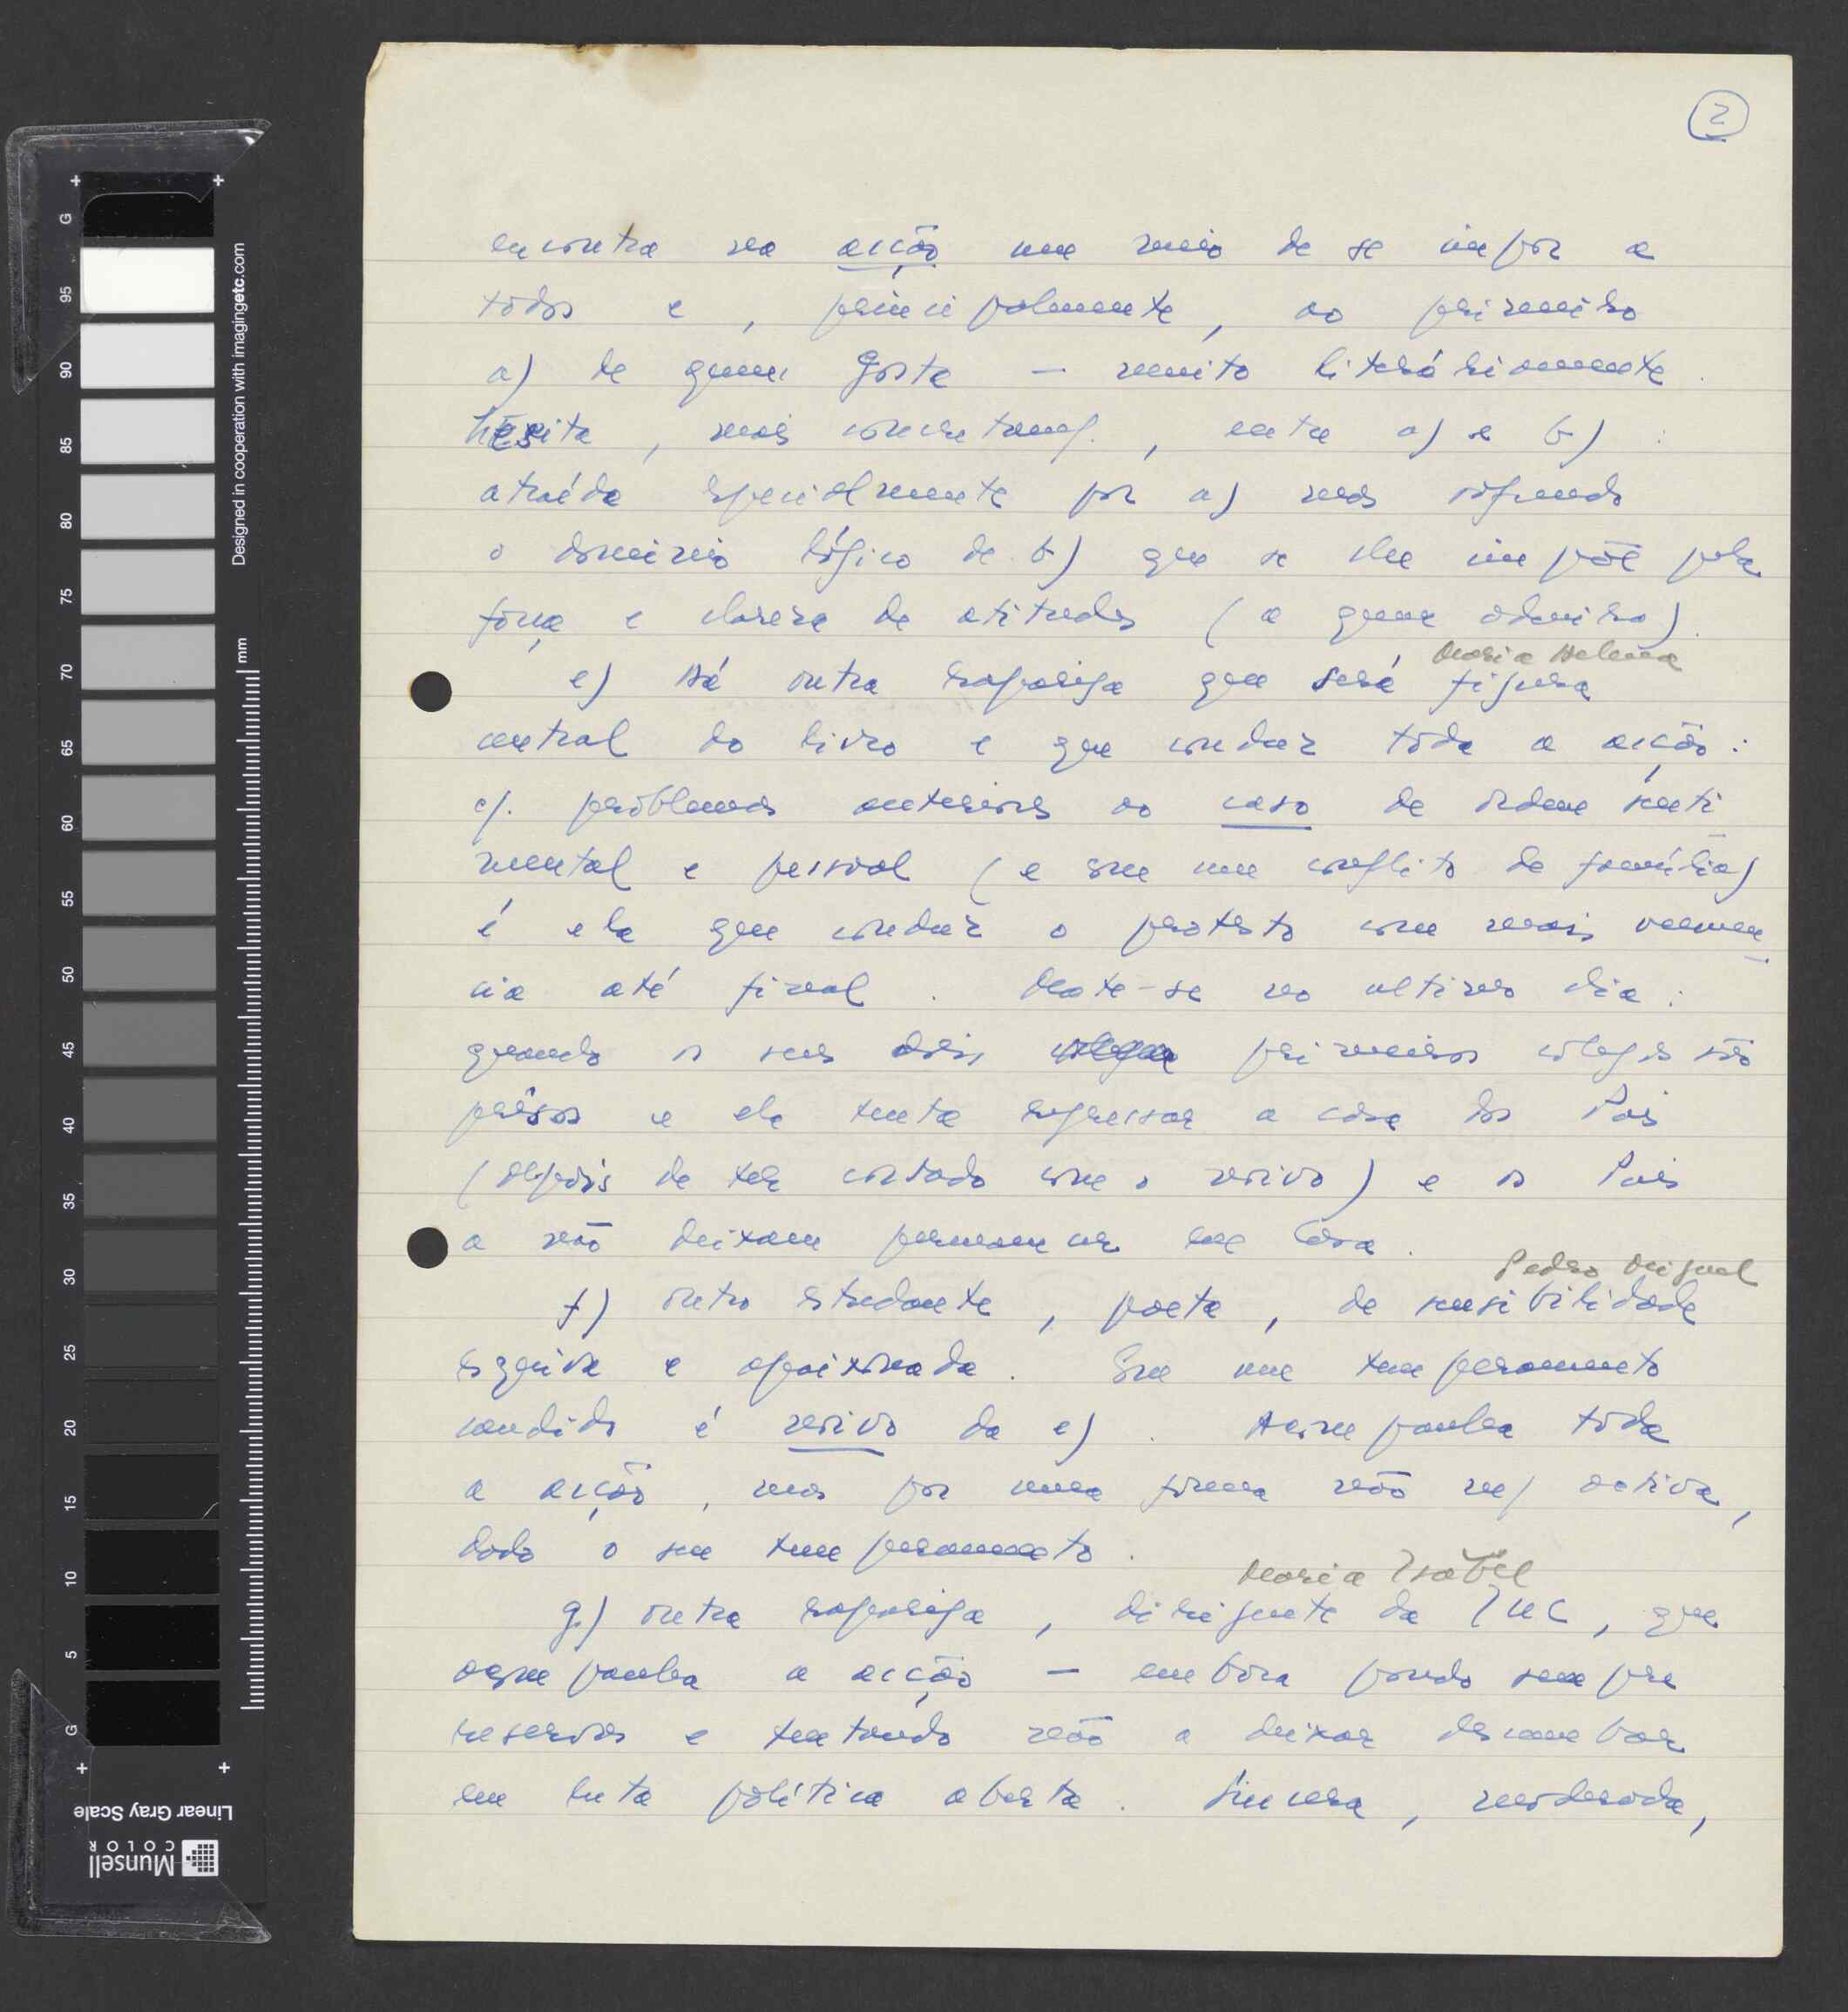 2
encontra na acção um meio de se impor a
todos e, principalmente, ao primeiro
a) de quem gosta — muito literáriamente.
hesita, mais concretam/., entre a) e b):
atraída especialmente por a) mas sofrendo
o domínio lógico de b) que se lhe impõe pela
força e clareza de atitudes (a quem admira).
Maria Helena
e) Há outra rapariga que será figura
central do livro e que conduz tôda a acção:
c/. problemas anteriores ao caso de ordem senti-
mental e pessoal (e em um conflito de família)
é ela que conduz o protesto com mais veemên-
cia até final. Mata-se no ultimo dia:
quando os seus dois primeiros colegas são
prêsos e ela tenta regressar a casa dos Pais
(depois de ter cortado com o noivo) e os Pais
a não deixam permanecer em casa.
Pedro Miguel
f) outro estudante, poeta, de sensibilidade
esquiva e apaixonada. Em um temperamento
candido é noivo da e). Acompanha tôda
a acção, mas por uma forma não m/ activa,
dado o seu temperamento.
Maria Isabel
g) outra rapariga, dirigente da JUC, que
acompanha a acção — embora pondo sempre
reservas e tentando não a deixar descambar
em luta política aberta. Sincera, moderada,
Designed in cooperation with imagingetc.com
mm
G
95
90
85
80
75
70
65
60
55
50
45
40
35
30
25
20
15
10
5
G
Linear Gray Scale
Munsell
COLOR